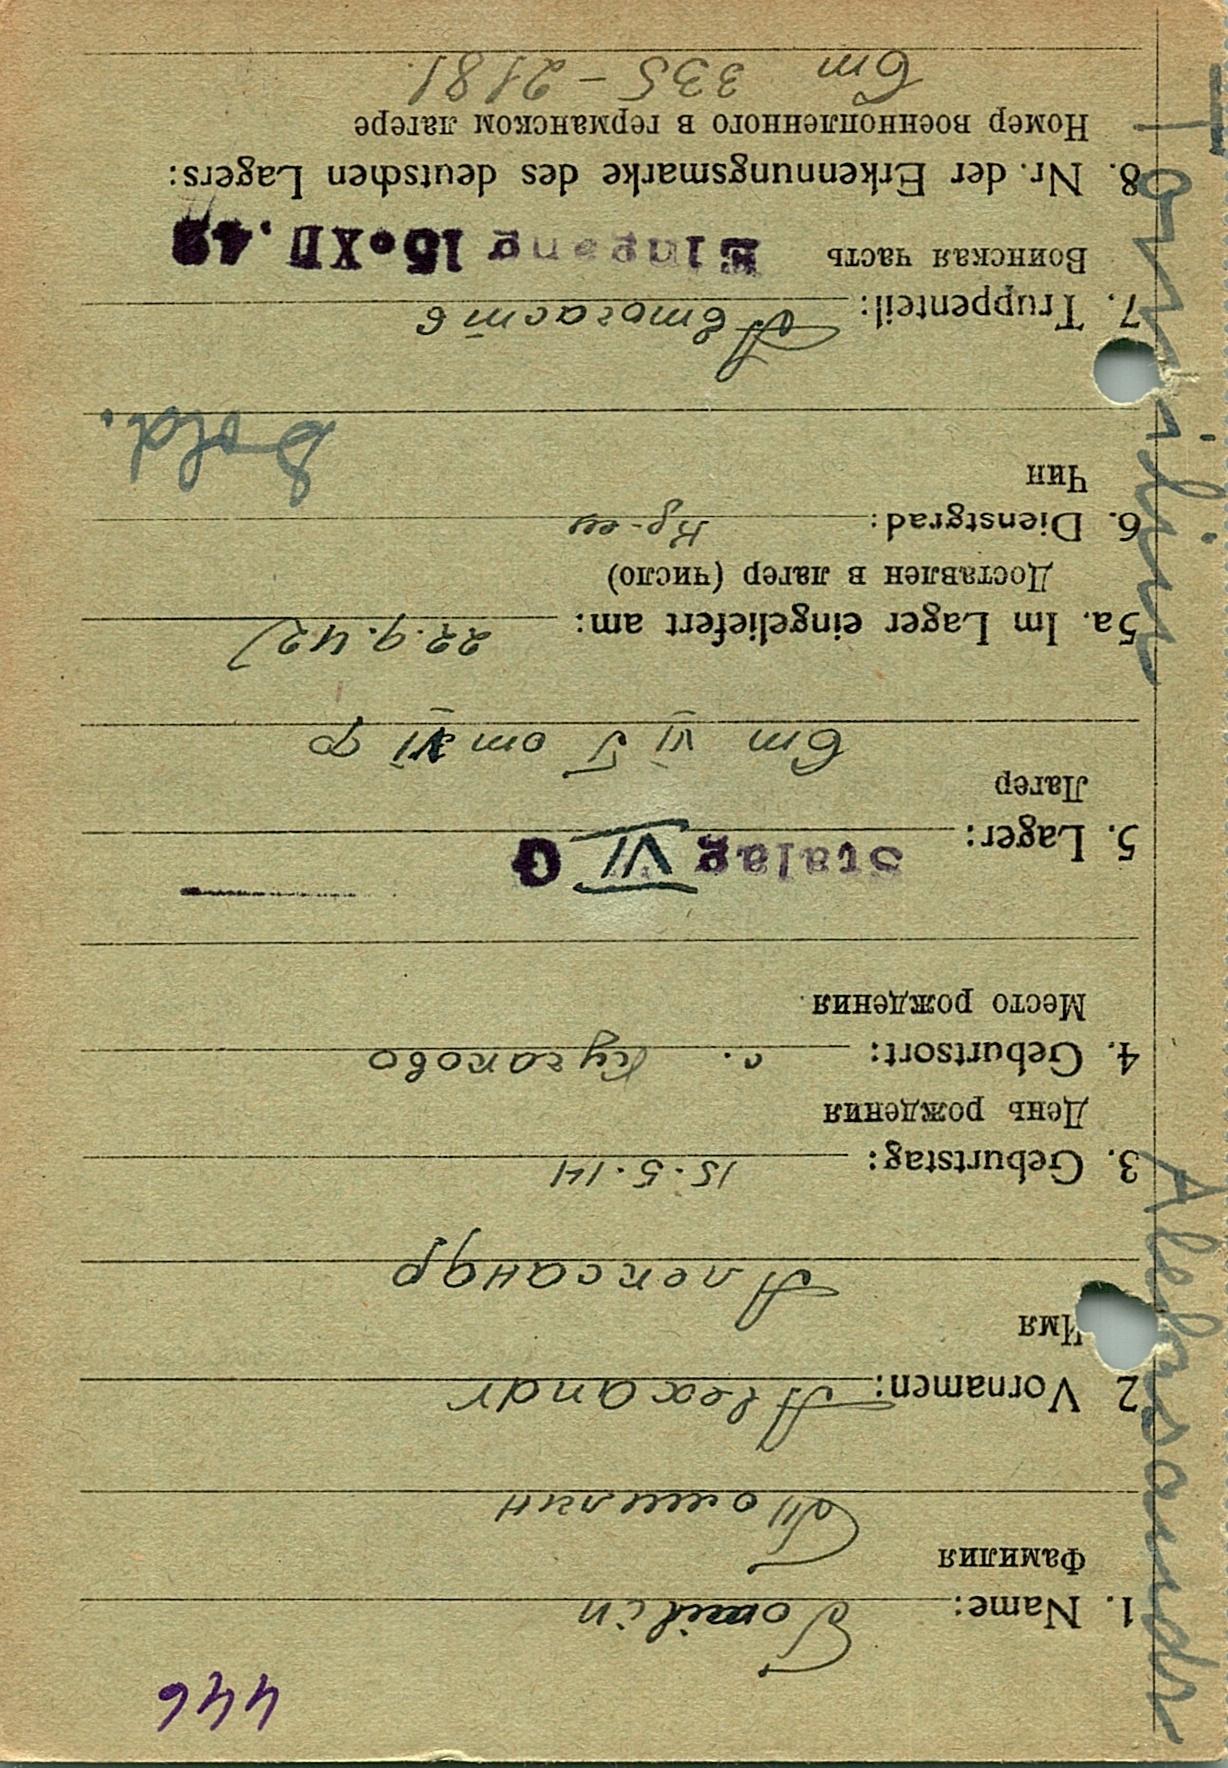 446
1. Name: Tomilin
Фамилия
Томилин
2 Vornamen: Alexandr
Имя
Александр
3. Geburtstag: 15.5.14
День рождения
4. Geburtsort: с. Кугаково
Место рождения
Stalag VI G
5. Lager:
Лагер
от VI
5a. Im Lager eingeliefert am: 22.9.42
Доставлен в лагер (число)
6. Dienstgrad: Кр-ец
Чин
Sold.
7. Truppenteil: Авточасть
Воинская часть Eingang 15. XII. 42
8. Nr. der Erkennungsmarke des deutschen Lagers:
Номер военнопленного в германском лагере
335-2181
Tomilin Aleksandr